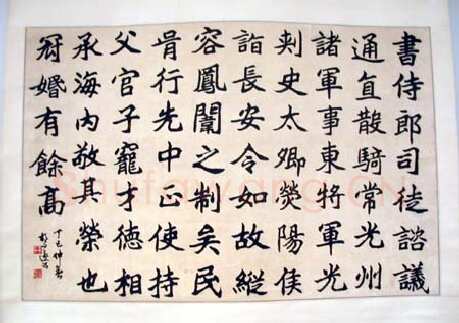 書侍郎司徒諮議
通直散騎常光州
諸軍事東將軍光
刾史太卿熒陽侯
詣長安令如故縱
容鳳闈之制矣民
行先中正使持
父官子寵才德相
承海內敬其榮也
冠婚有餘高
丁巳仲春